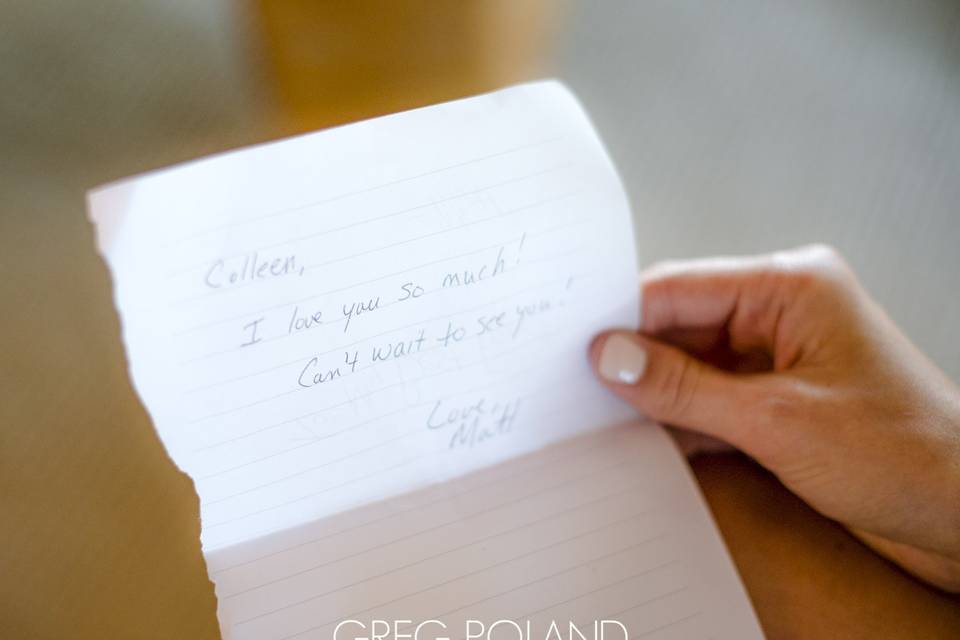 Colleen,
I love you so much!
Can't wait to see you!
Love,
Matt
GREG POLAND